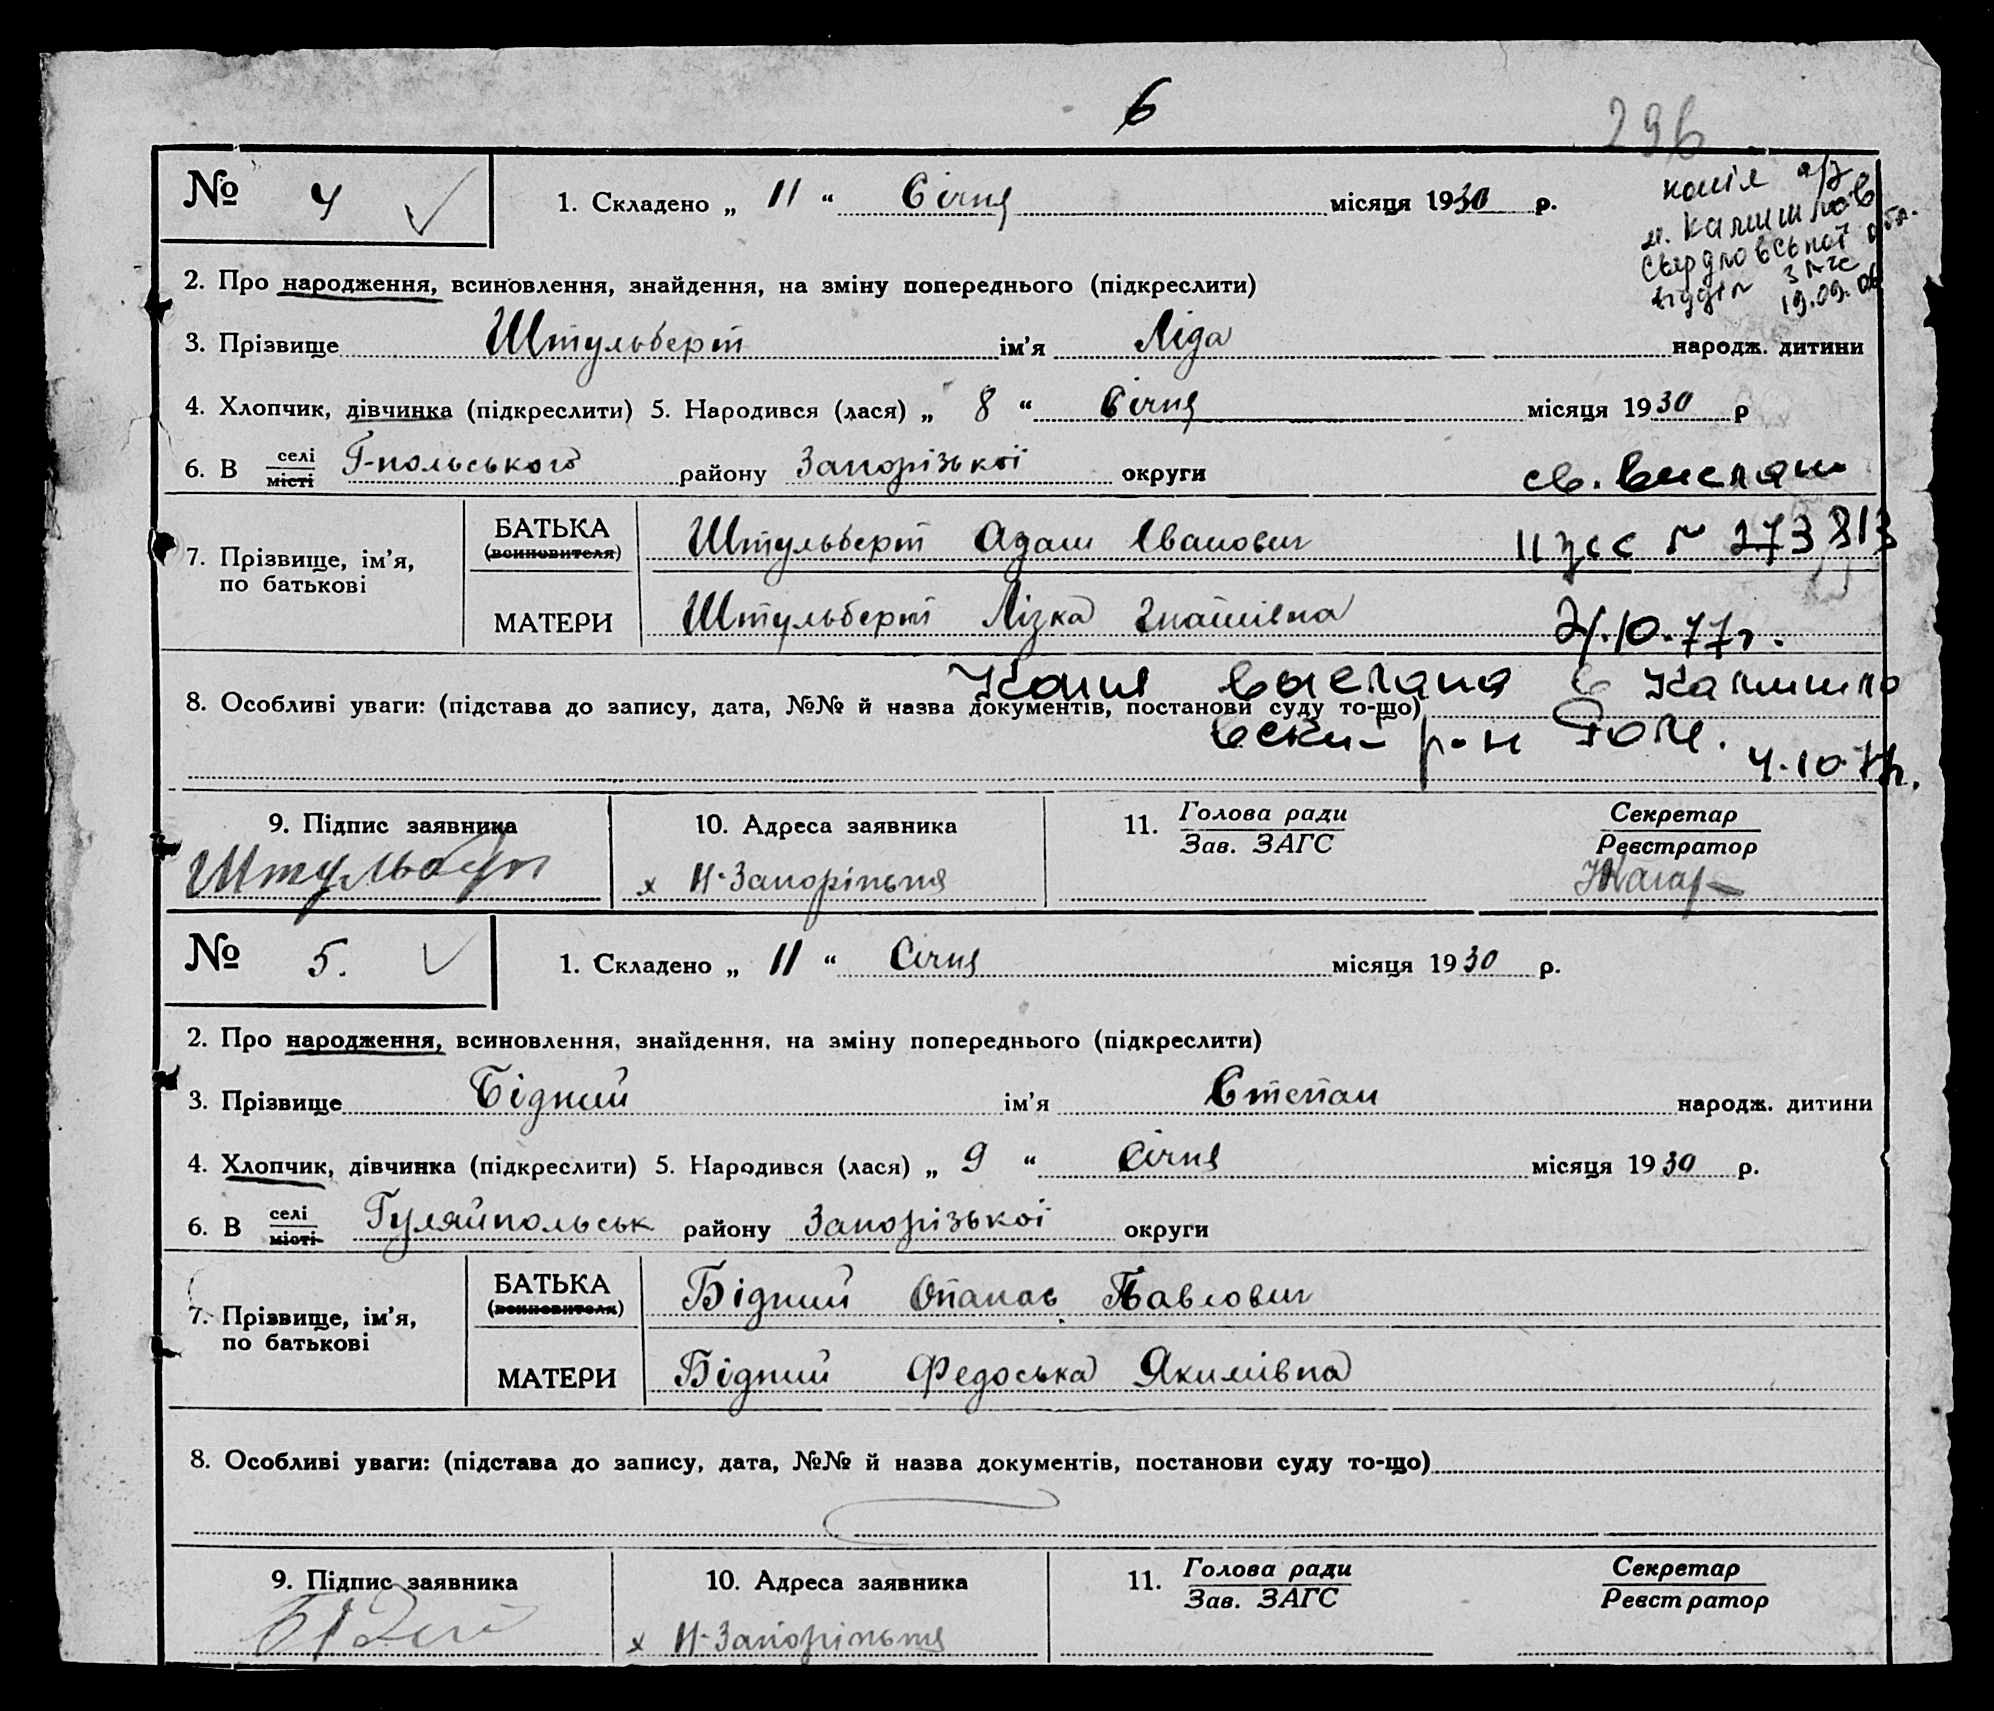 6
296
№ 4
1. Складено „ 11 “ Січня місяця 1930 р.
копія а/з
м. Камишлов
Свердловської обл.
відділ ЗАГС
19.09.06
2. Про народження, всиновлення, знайдення, на зміну попереднього (підкреслити)
3. Прізвище Штульберт ім’я Ліда народж. дитини
4. Хлопчик, дівчинка (підкреслити) 5. Народився (лася) „ 8 “ Січня місяця 1930 р
6. В селі місті Г-польського району Запорізької округи
св. выслан
7. Прізвище, ім’я, по батькові
БАТЬКА (всиновителя) Штульберт Адам Іванович
№ 273813
МАТЕРИ Штульберт Лізка Гнатівна
21.10.77г.
Копия выслана в Камышло
8. Особливі уваги: (підстава до запису, дата, №№ й назва документів, постанови суду то-що)
вски- р-н
4.10.77г.
9. Підпис заявника
10. Адреса заявника
11. Голова ради
Зав. ЗАГС
Секретар
Реєстратор
Штульберт
х Н-Запоріжжя
№ 5.
1. Складено „ 11 “ Січня місяця 1930 р.
2. Про народження, всиновлення, знайдення, на зміну попереднього (підкреслити)
3. Прізвище Бідний ім’я Степан народж. дитини
4. Хлопчик, дівчинка (підкреслити) 5. Народився (лася) „ 9 “ Січня місяця 1930 р.
6. В селі місті Гуляйпольськ району Запорізької округи
7. Прізвище, ім’я, по батькові
БАТЬКА (всиновителя) Бідний Опанас Павлович
МАТЕРИ Бідний Федоська Якимівна
8. Особливі уваги: (підстава до запису, дата, №№ й назва документів, постанови суду то-що)
9. Підпис заявника
10. Адреса заявника
11. Голова ради
Зав. ЗАГС
Секретар
Реєстратор
Бідний
х Н-Запоріжжя